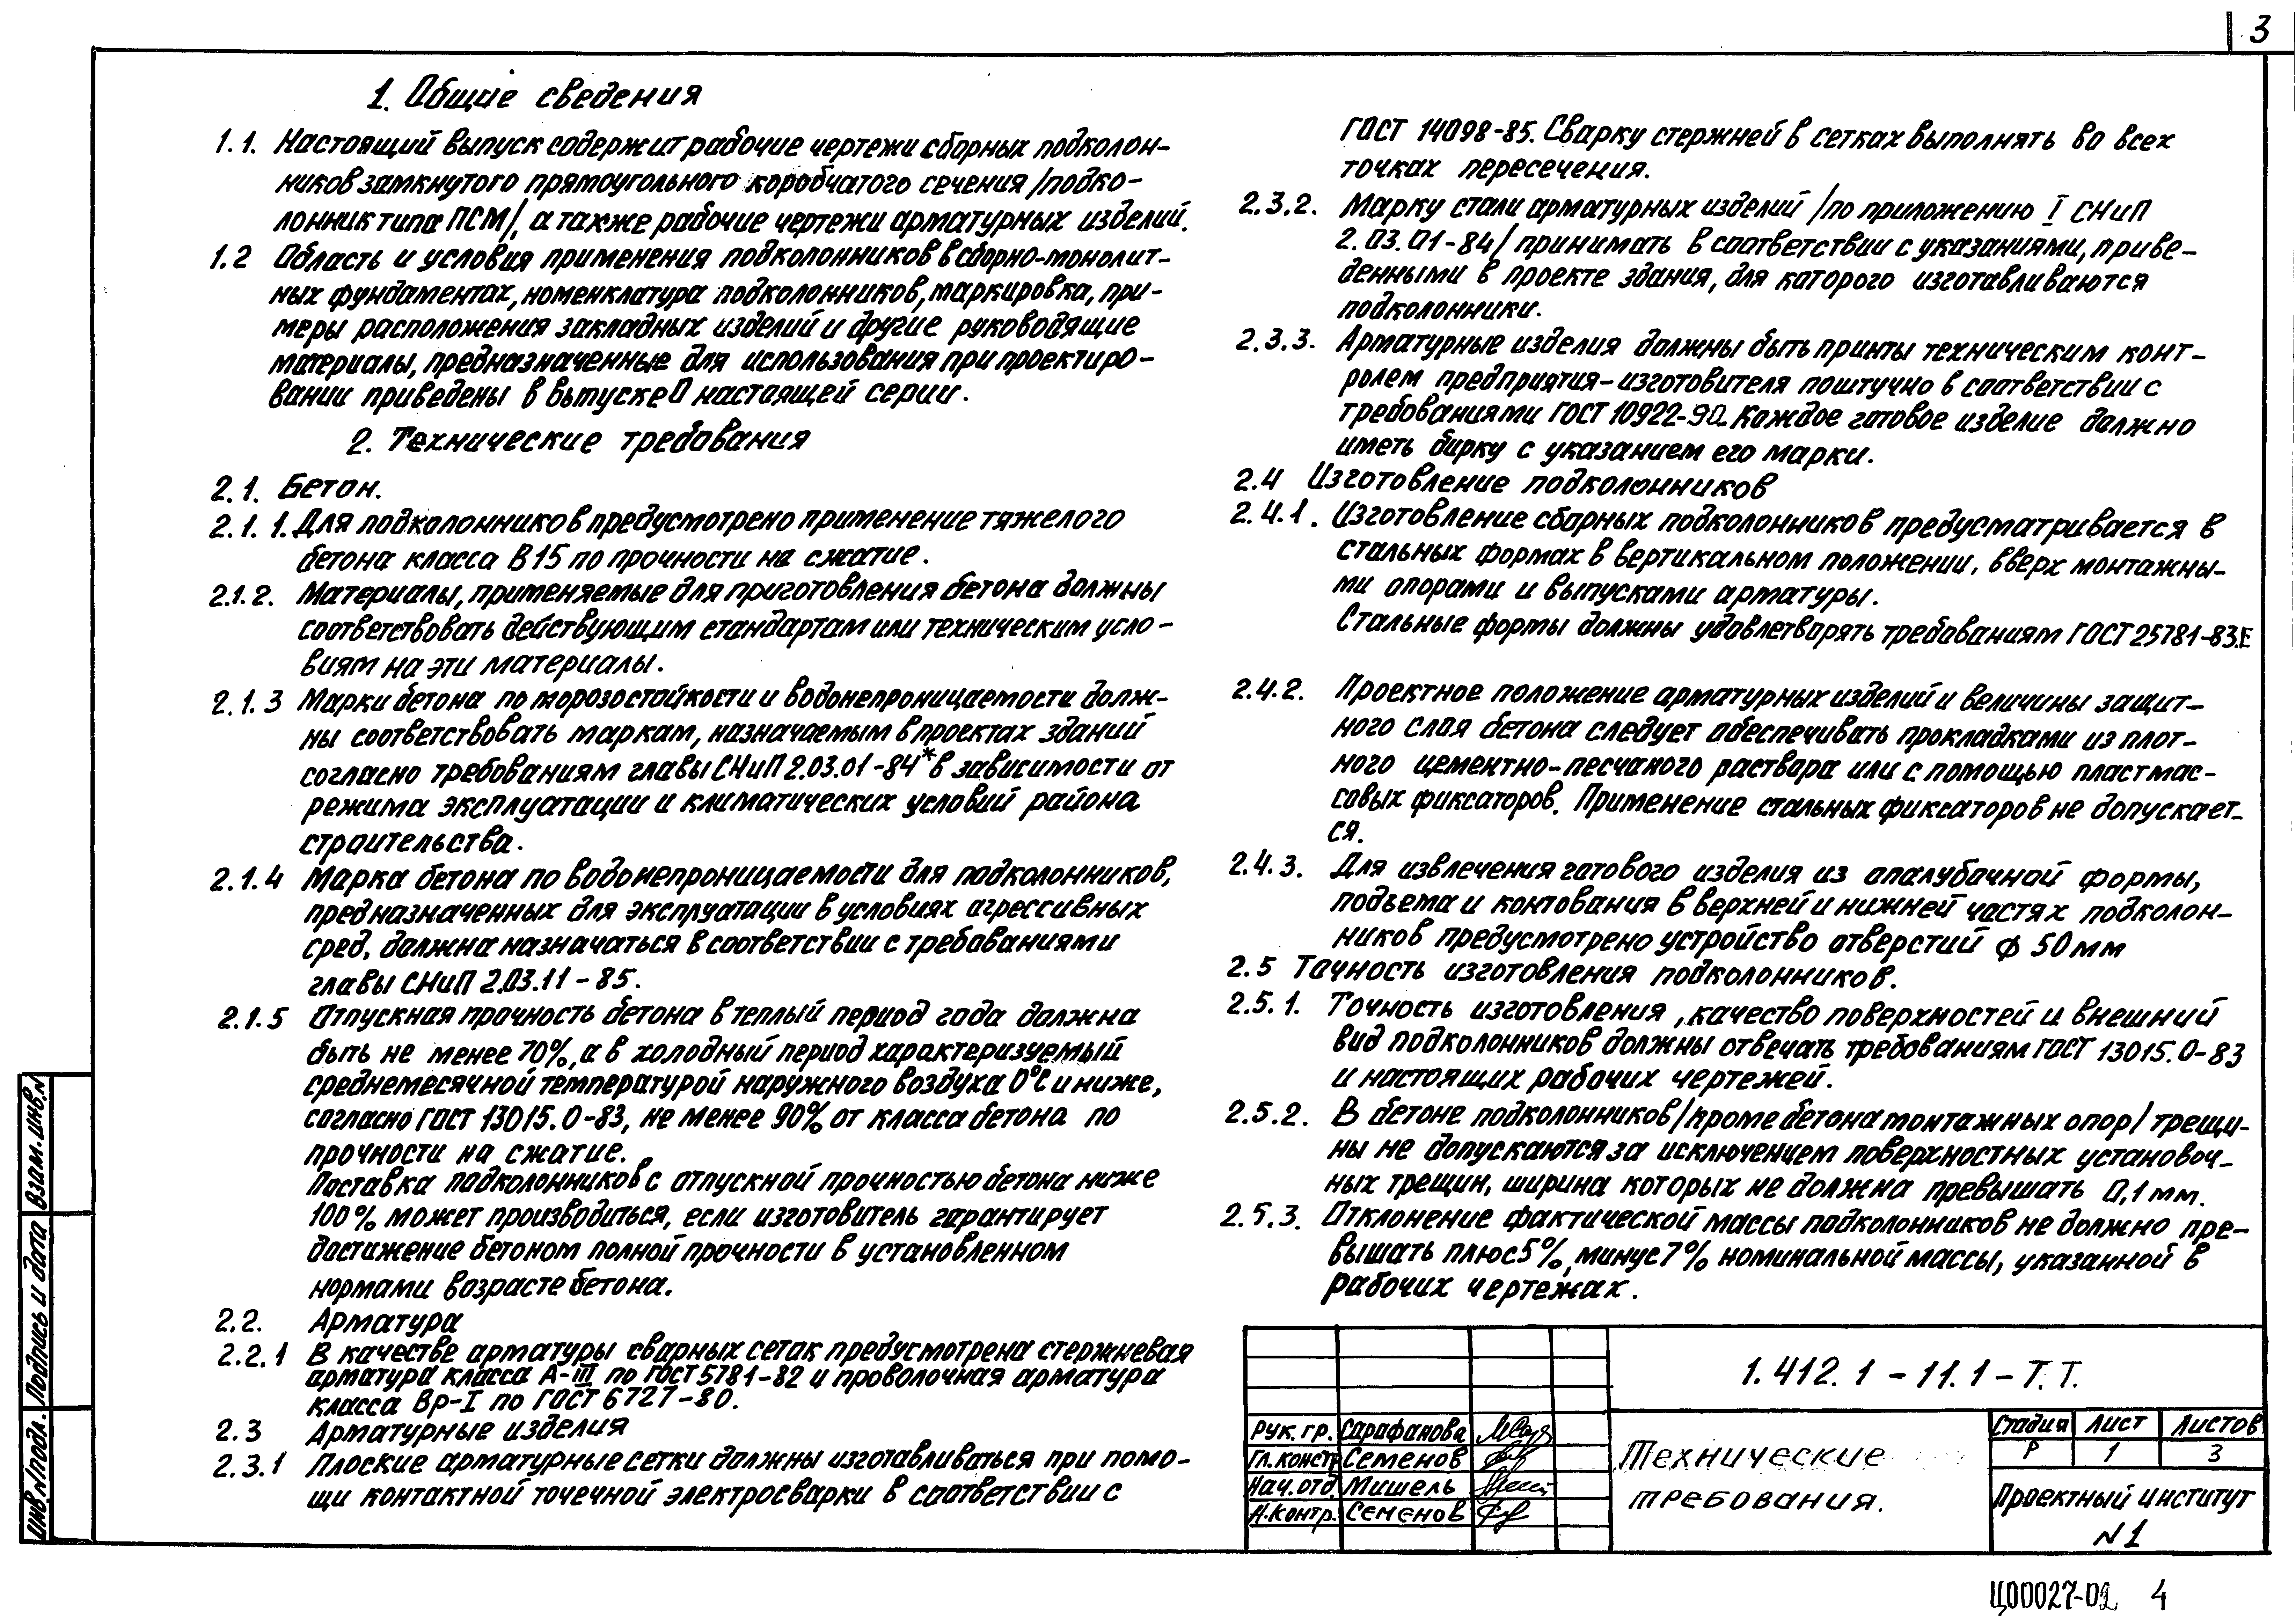 3
1. Общие сведения
1.1. Настоящий выпуск содержит рабочие чертежи сборных подколон-
ников замкнутого прямоугольного коробчатого сечения /подко-
лонник типа ПСМ/, а также рабочие чертежи арматурных изделий.
1.2 Область и условия применения подколонников в сборно-монолит-
ных фундаментах, номенклатура подколонников, маркировка, при-
меры расположения закладных изделий и другие руководящие
материалы, предназначенные для использования при проектиро-
вании приведены в выпуске 0 настоящей серии.
2. Технические требования
2.1. Бетон.
2.1.1. Для подколонников предусмотрено применение тяжелого
бетона класса В15 по прочности на сжатие.
2.1.2. Материалы, применяемые для приготовления бетона должны
соответствовать действующим стандартам или техническим усло-
виям на эти материалы.
2.1.3 Марки бетона по морозостойкости и водонепроницаемости долж-
ны соответствовать маркам, назначаемым в проектах зданий
согласно требованиям главы СНиП 2.03.01-84* в зависимости от
режима эксплуатации и климатических условий района
строительства.
2.1.4 Марка бетона по водонепроницаемости для подколонников,
предназначенных для эксплуатации в условиях агрессивных
сред, должна назначаться в соответствии с требованиями
главы СНиП 2.03.11-85.
2.1.5 Отпускная прочность бетона в теплый период года должна
быть не менее 70%, а в холодный период характеризуемый
среднемесячной температурой наружного воздуха 0°С и ниже,
согласно ГОСТ 13015.0-83, не менее 90% от класса бетона по
прочности на сжатие.
Поставка подколонников с отпускной прочностью бетона ниже
100% может производиться, если изготовитель гарантирует
достижение бетоном полной прочности в установленном
нормами возрасте бетона.
2.2. Арматура
2.2.1 В качестве арматуры сварных сеток предусмотрена стержневая
арматура класса А-III по ГОСТ 5781-82 и проволочная арматура
класса Вр-I по ГОСТ 6727-80.
2.3 Арматурные изделия
2.3.1 Плоские арматурные сетки должны изготавливаться при помо-
щи контактной точечной электросварки в соответствии с
ГОСТ 14098-85. Сварку стержней в сетках выполнять во всех
точках пересечения.
2.3.2. Марку стали арматурных изделий /по приложению I СНиП
2.03.01-84/ принимать в соответствии с указаниями, приве-
денными в проекте здания, для которого изготавливаются
подколонники.
2.3.3. Арматурные изделия должны быть принты техническим конт-
ролем предприятия-изготовителя поштучно в соответствии с
требованиями ГОСТ 10922-90. Каждое готовое изделие должно
иметь бирку с указанием его марки.
2.4 Изготовление подколонников
2.4.1. Изготовление сборных подколонников предусматривается в
стальных формах в вертикальном положении, вверх монтажны-
ми опорами и выпусками арматуры.
Стальные формы должны удовлетворять требованиям ГОСТ 25781-83.Е
2.4.2. Проектное положение арматурных изделий и величины защит-
ного слоя бетона следует обеспечивать прокладками из плот-
ного цементно-песчаного раствора или с помощью пластмас-
совых фиксаторов. Применение стальных фиксаторов не допускает-
ся.
2.4.3. Для извлечения готового изделия из опалубочной формы,
подъема и контования в верхней и нижней частях подколон-
ников предусмотрено устройство отверстий ф 50 мм
2.5 Точность изготовления подколонников.
2.5.1. Точность изготовления, качество поверхностей и внешний
вид подколонников должны отвечать требованиям ГОСТ 13015.0-83
и настоящих рабочих чертежей.
2.5.2. В бетоне подколонников /кроме бетона монтажных опор/ трещи-
ны не допускаются за исключением поверхностных установоч-
ных трещин, ширина которых не должна превышать 0,1 мм.
2.5.3. Отклонение фактической массы подколонников не должно пре-
вышать плюс 5%, минус 7% номинальной массы, указанной в
рабочих чертежах.
1.412.1-11.1-Т.Т.
Рук. гр. Сарафанова
Гл. констр Семенов
Нач. отд Мишель
Н.контр. Семенов
Технические
требования.
Стадия Лист Листов
Р 1 3
Проектный институт
N1
Инв.N подл. Подпись и дата Взам. инв.N
Ц00027-02 4